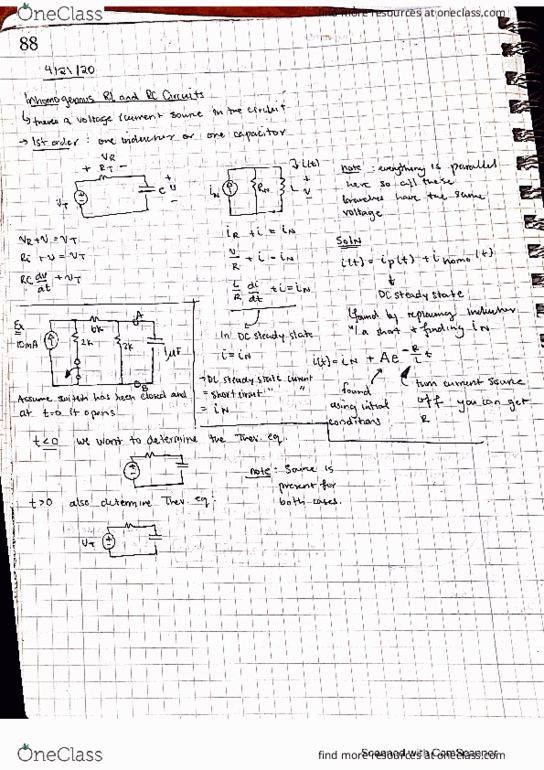 OneClass
find more resources at oneclass.com
88
4/21/20
Inhomogenous RL and RC Circuits
↳ theres a voltage/current source in the circuit
→ 1st order : one inductor or one capacitor
VR
+ RT -
+
C v
-
VT
iN
RN
L
↓i(t)
+
v
-
note : everything is parallel
here so all these
branches have the same
voltage
VR + V = VT
Ri + v = VT
RC dv/dt + VT
iR + i = iN
v/R + i = iN
L/R di/dt + i = iN
Soln
i(t) = ip(t) + i homo (t)
↓
DC steady state
found by replacing inductor
w/ a short & finding iN
In DC steady state
i = iN
→ DC steady state current
= short circuit " "
= iN
i(t) = iN + Ae^(-R/L t)
found
using initial
conditions
turn current source
off you can get
R
Ex
10mA
6k
2k
2k
A
1μF
B
Assume switch has been closed and
at t=0 it opens
t<0 we want to determine the Thev. eq.
note : Source is
present for
both cases.
t>0 also determine Thev. eq:
VT
OneClass
find more resources at oneclass.com
Scanned with CamScanner